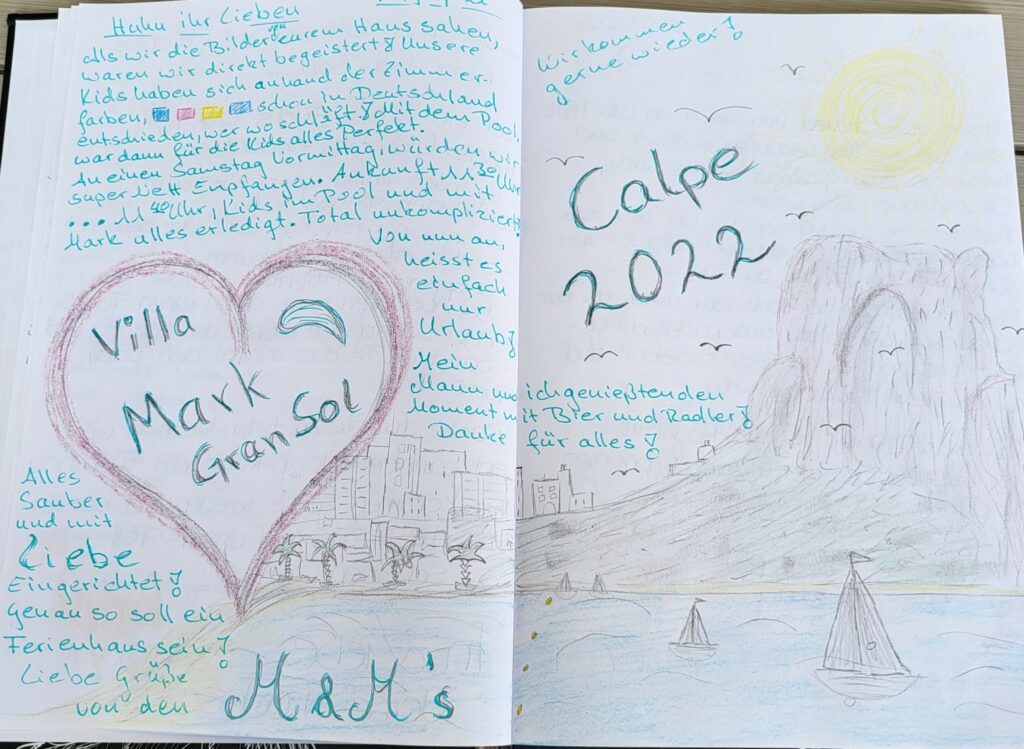 Huhu ihr Lieben
als wir die Bilder von eurem Haus sahen,
waren wir direkt begeistert! Unsere
Kids haben sich anhand der Zimmer-
farben, schon in Deutschland
entschieden, wer wo schläft! Mit dem Pool,
war dann für die Kids alles Perfekt.
An einen Samstag Vormittag, würden wir
super nett Empfangen. Ankunft 11³⁰ Uhr
... 11⁴⁰ Uhr, Kids im Pool und mit
Mark alles erledigt. Total unkompliziert!
Von nun an,
heisst es
einfach
nur
Urlaub!
Mein
Mann und ich genießten den
Moment mit Bier und Radler!
Danke für alles!
Villa
Mark
Gran Sol
Alles
Sauber
und mit
Liebe
Eingerichtet!
Genau so soll ein
Ferienhaus sein!
Liebe Grüße
von den M&M's
Wir kommen
gerne wieder!
Calpe
2022